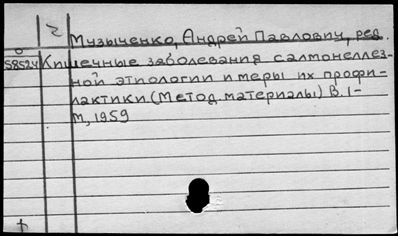 2
Музыченко, Андрей Павлович, ред.
58524 Кишечные заболевания салмонеллез-
ной этиологии и меры их профи-
лактики (Метод. материалы) В. 1-
М, 1959